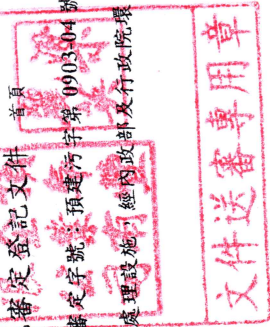 審定登記文件 首頁
審定字號：預建污字第 0903-04 號
處理設施」經內政部及行政院環
文件送審專用章